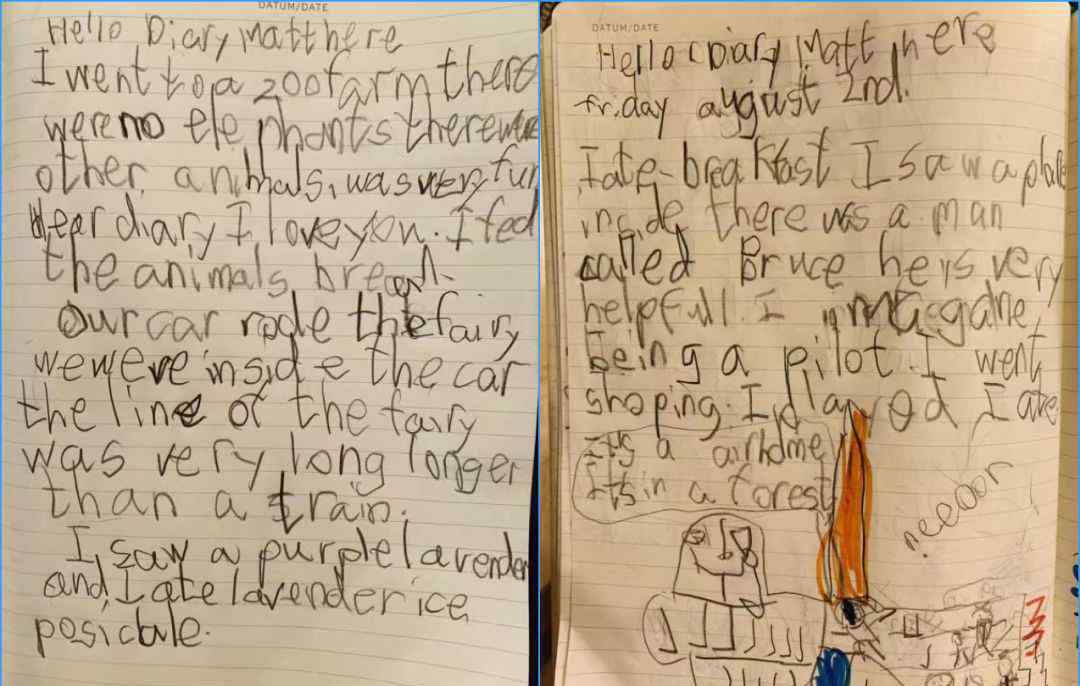 DATUM/DATE
Hello Diary Matt here
I went to a zoo farm there
were no ele phants there were
other animals, was very fun
dear diary I love you. I fed
the animals bread.
Our car rode the fairy
we weve insid e the car
the line of the fairy
was very long longer
than a train.
I saw a purple lavender
and I ate lavender ice
posicle.
DATUM/DATE
Hello Diary Matt here
friday august 2nd.
I ate breakfast I saw a
inside there was a man
called Bruce he is very
helpfull. I
being a pilot. I went
shoping. I played I ate
its a airdome
Its in a forest
neeoor